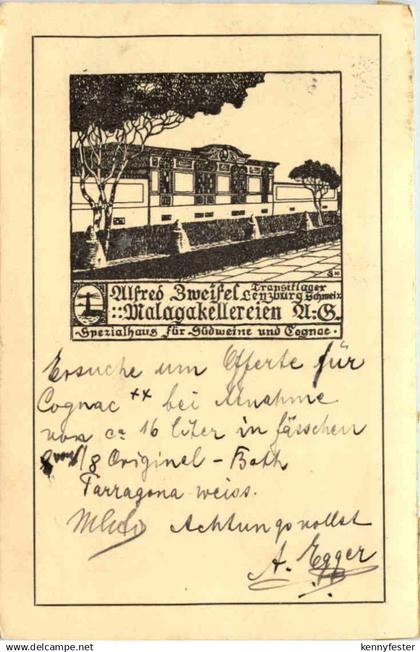 Alfred Zweifel Transitlager
Lenzburg Schweiz
::Malagakellereien A:G.
Spezialhaus für Südweine und Cognac
Ersuche um Offerte für
Cognac ** bei Abnahme
von ca 16 liter in fässchen
1/8 Original - Both
Tarragona weiss.
Achtungsvollst
A. Egger
www.delcampe.net
kennyfester